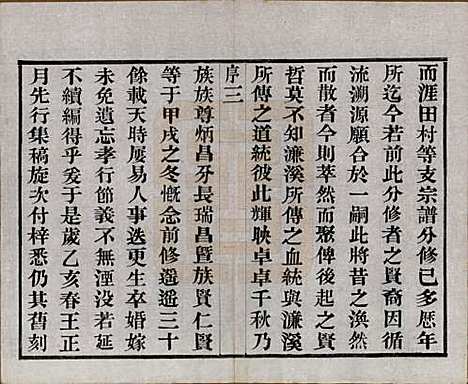 而涯田村等支宗譜分修已多歷年
所迄今若前此分修者之賢裔因循
流溯源願合於一嗣此將昔之渙然
而散者今則萃然而聚俾後起之賢
哲莫不知濂溪所傳之血統與濂溪
所傳之道統彼此輝映卓卓千秋乃
序三
族族尊炳昌牙長瑞昌暨族賢仁賢
等于甲戌之冬慨念前修遥遥三十
餘載天時屢易人事迭更生卒婚嫁
未免遺忘孝行節義不無湮沒若延
不續編得乎爰于是歲乙亥春王正
月先行集稿旋次付梓悉仍其舊刻